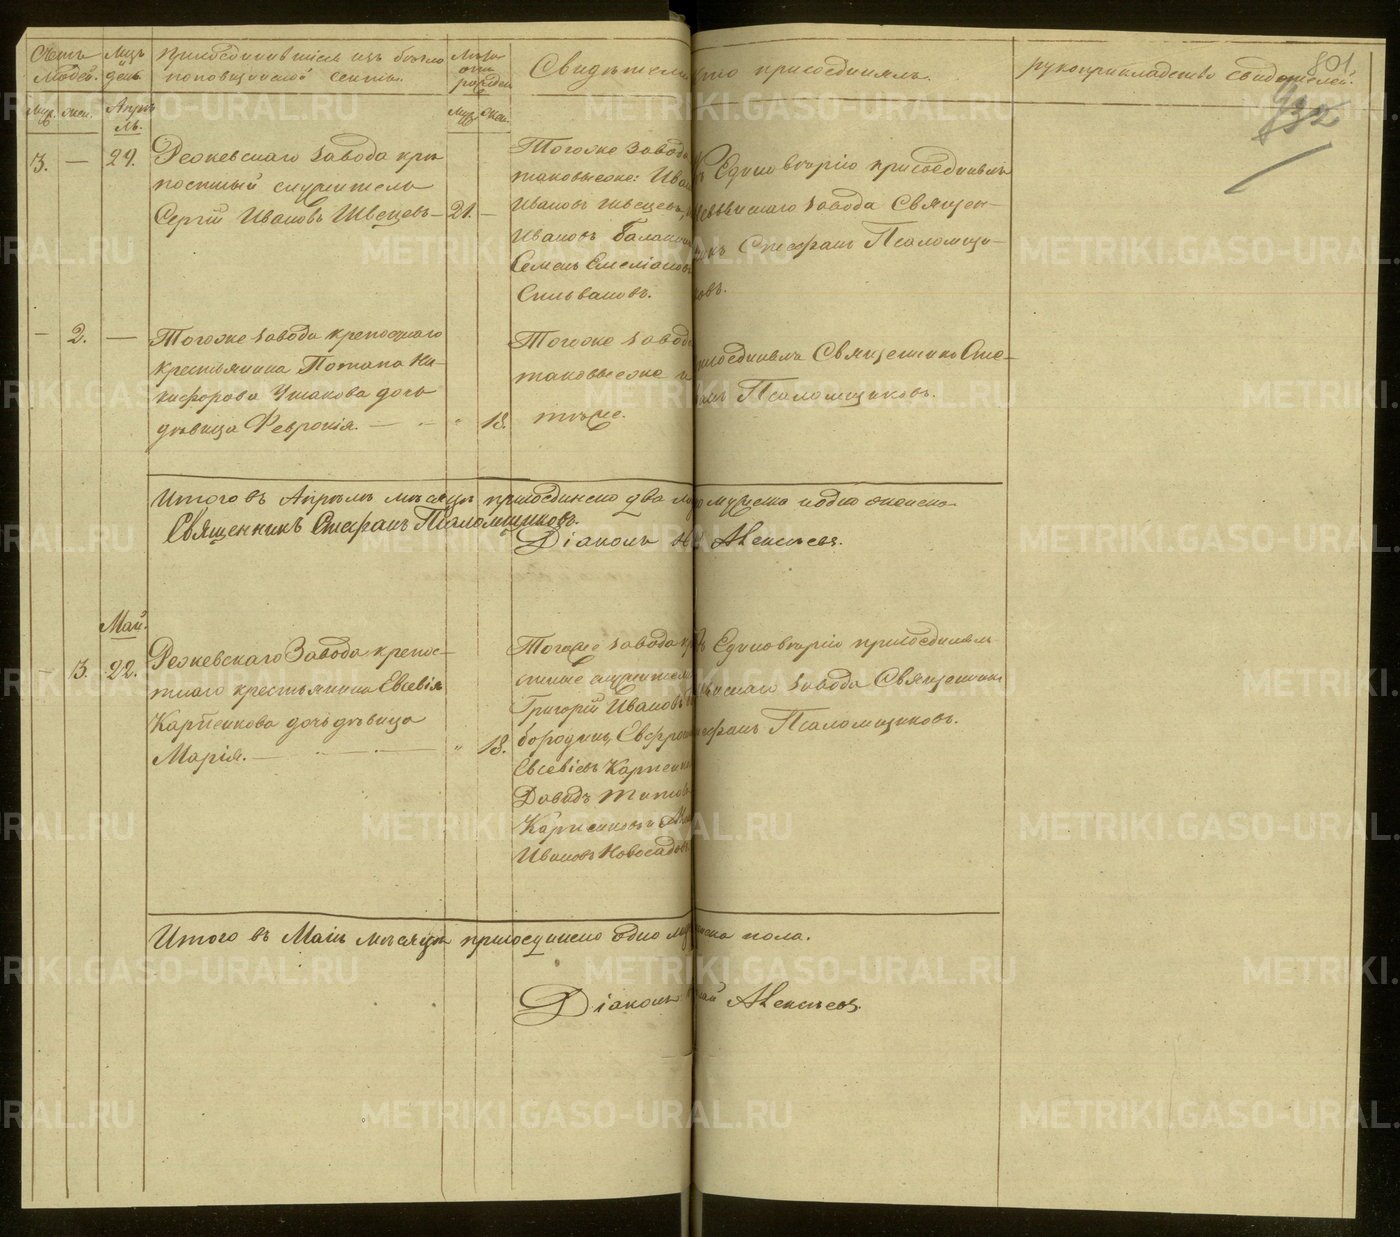 Счетъ людей.
Мцъ и день
Присоединившіеся изъ бѣгло
поповщинской секты.
Лѣта отъ рожден.
Свидѣтели
Кто присоединялъ.
рукоприкладство свидѣтелей.
801
932
Муж. жен.
Апрѣ
ль.
Муж. Жен.
3. — 29. Режевскаго завода крѣ
постный служитель
Сергій Ивановъ Швецовъ — 21. —
Тогоже завода
таковыеже: Иван
Ивановъ Швецовъ, и
Ивановъ Балакин
Семенъ Емеліановъ
Сильвановъ.
къ Единовѣрію присоединялъ
завода Священ-
никъ Стефанъ Псаломщи-
ковъ.
— 2. — Тогоже завода крепостнаго
крестьянина Потапа Ни-
кифорова Ушакова дочь
дѣвица Февронія. — " 18.
Тогоже завода
таковыеже и
тѣже.
присоединялъ Священникъ Сте-
фанъ Псаломщиковъ.
Итого въ Апрѣлѣ мѣсяцѣ присоединено два
Священникъ Стефанъ Псаломщиковъ.
Діаконъ Алексѣевъ.
Май.
— 3. 22. Режевскаго Завода крепос-
тнаго крестьянина Евсевія
Карпенкова дочь дѣвица
Марія. — " 18.
Тогоже завода кр
стные служители
Григорій Ивановъ
бородинъ,
Евсевіевъ Карпенк
Давидъ Титовъ
Карпенковъ и
Ивановъ Новосадовъ.
Къ Единовѣрію присоединялъ
завода Священникъ
Стефанъ Псаломщиковъ.
Итого въ Маіѣ мѣсяцѣ присоединено одно женска пола.
Діаконъ Алексѣевъ.
METRIKI.GASO-URAL.RU